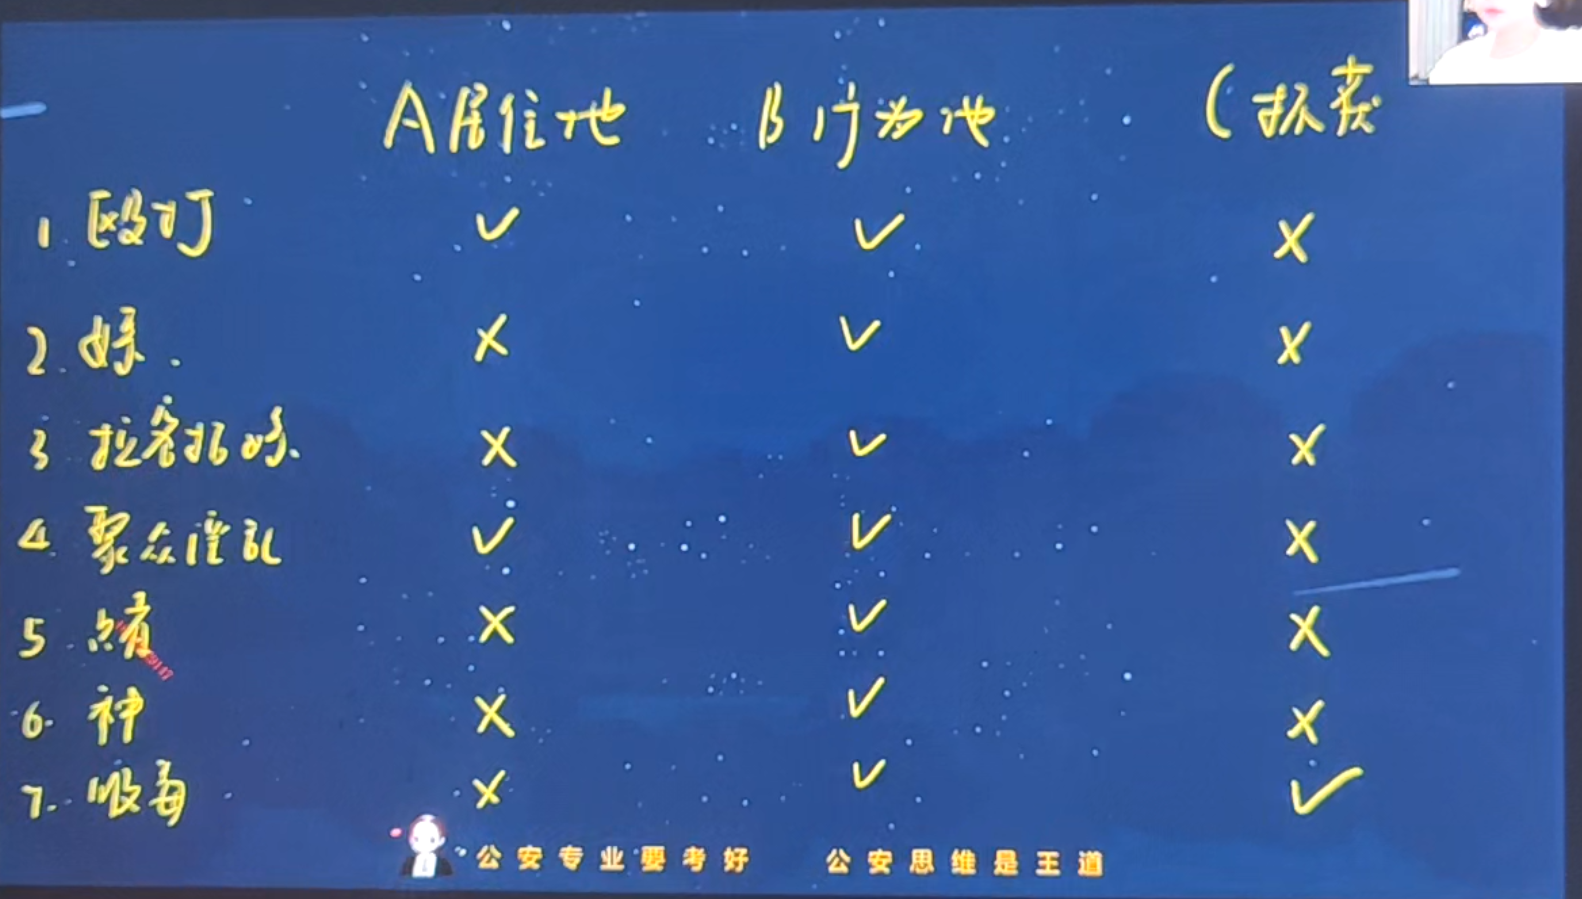 A居住地 B行为地 C抓获
1. 殴打 ✓ ✓ ×
2. 嫖. × ✓ ×
3 拉客招嫖. × ✓ ×
4. 聚众淫乱 ✓ ✓ ×
5. 赌 × ✓ ×
6. 神 × ✓ ×
7. 吸毒 × ✓ ✓
公安专业要考好 公安思维是王道